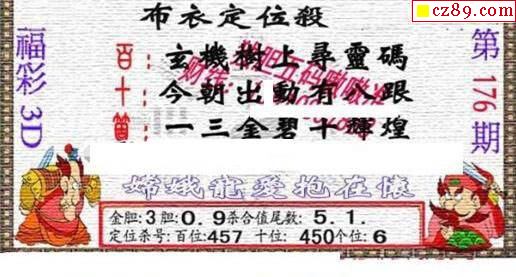 cz89.com
布衣定位殺
福彩3D
第176期
百：玄機樹上尋靈碼
十：今朝出動有八跟
個：一三金碧十輝煌
嫦娥寵愛抱在懷
金胆:3胆:0.9杀合值尾数:5.1.
定位杀号:百位:457 十位:450个位:6